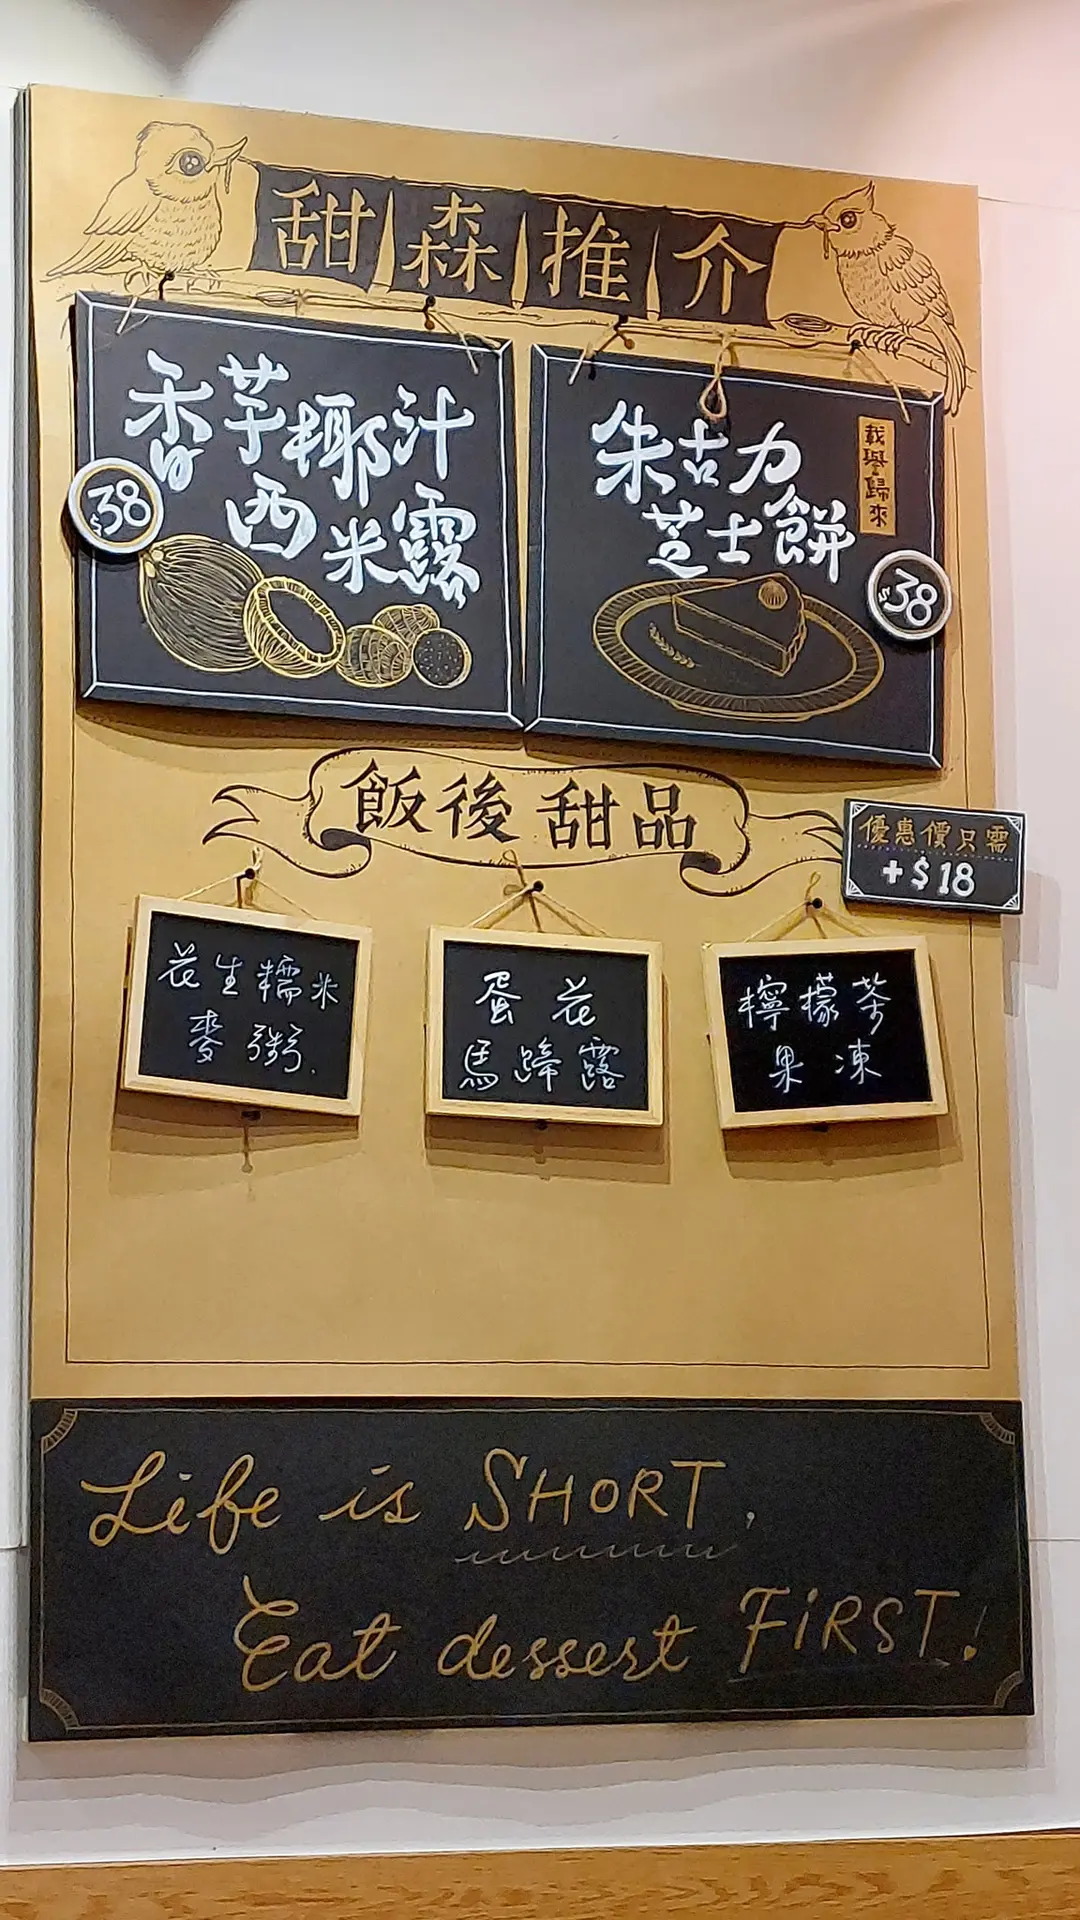 甜森推介
香芋椰汁
西米露
$38
朱古力
芝士餅
載譽歸來
$38
飯後甜品
優惠價只需
+$18
花生糯米
麥粥.
蛋花
馬蹄露
檸檬茶
果凍
Life is SHORT,
Eat dessert FIRST!